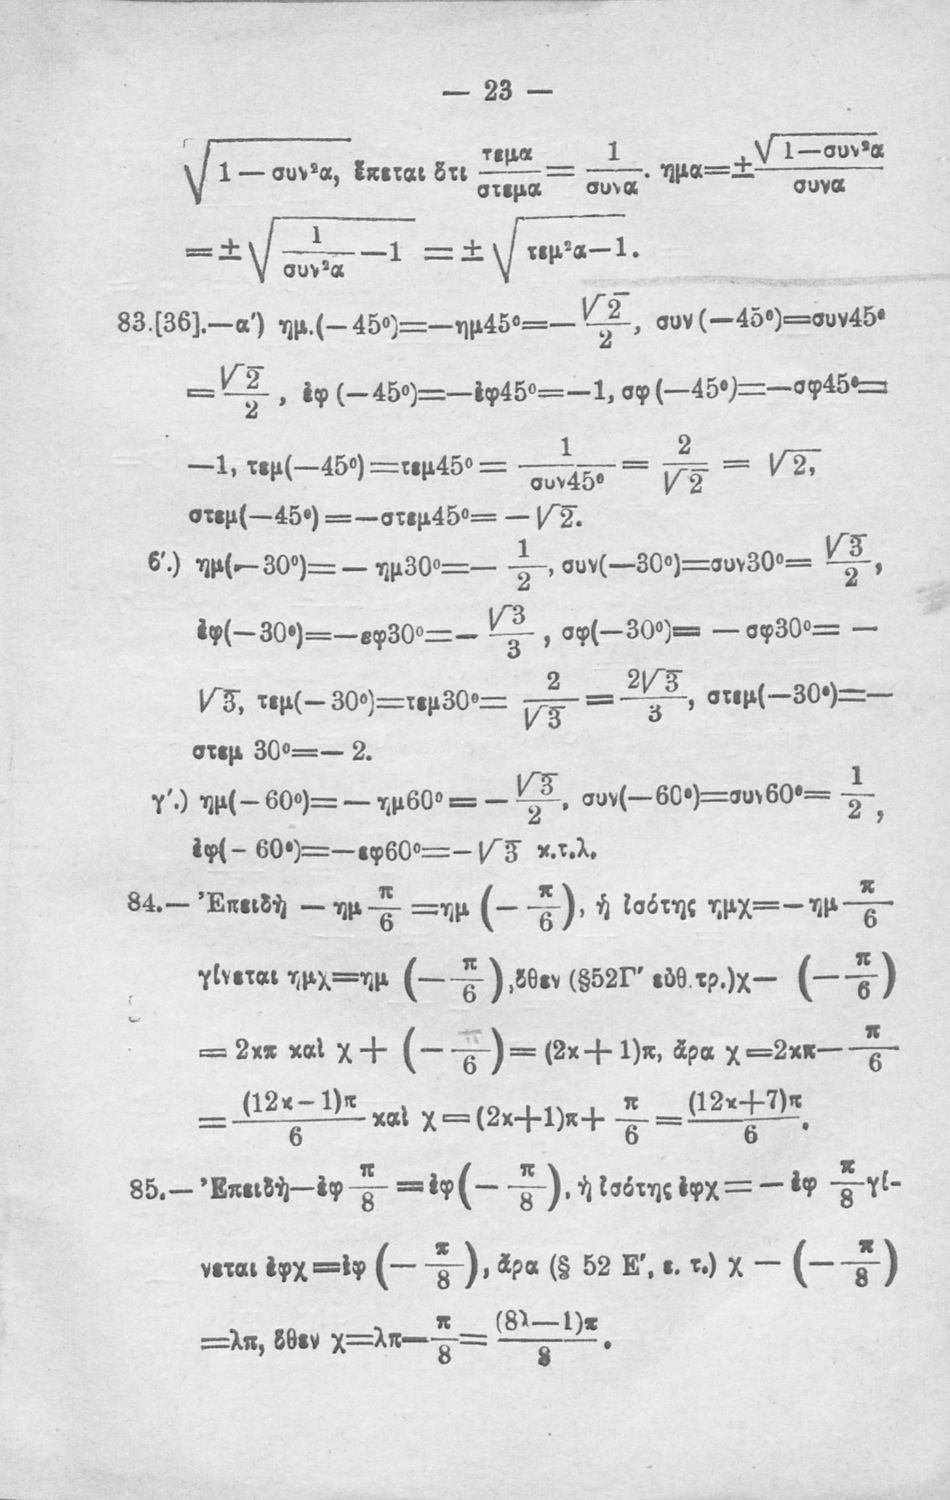 — 23 —
√1 — συν²α, ἕπεται ὅτι τεμα/στεμα = 1/συνα. ημα=±√1—συν²α/συνα
=±√1/συν²α —1 =± √τεμ²α—1.
83.[36].—α′) ημ.(—45⁰)=—ημ45⁰=—√2/2, συν (—45⁰)=συν45⁰
=√2/2, ἐφ (—45⁰)=—ἐφ45⁰=—1, σφ (—45⁰)=—σφ45⁰=
—1, τεμ(—45⁰)=τεμ45⁰= 1/συν45⁰ = 2/√2 = √2,
στεμ(—45⁰)=—στεμ45⁰= —√2.
ϐ′.) ημ(—30⁰)=— ημ30⁰=— 1/2, συν(—30⁰)=συν30⁰= √3/2,
ἐφ(—30⁰)=—εφ30⁰=— √3/3, σφ(—30⁰)= — σφ30⁰= —
√3, τεμ(—30⁰)=τεμ30⁰= 2/√3 = 2√3/3, στεμ(—30⁰)=—
στεμ 30⁰=— 2.
γ′.) ημ(—60⁰)=— ημ60⁰=—√3/2, συν(—60⁰)=συν60⁰= 1/2,
ἐφ(—60⁰)=—εφ60⁰=—√3 κ.τ.λ.
84.— Ἐπειδὴ — ημ π/6 =ημ (—π/6), ἡ ἰσότης ημχ=—ημ π/6
γίνεται ημχ=ημ (—π/6),ὅθεν (§52Γ′ εὐθ.τρ.)χ— (—π/6)
= 2κπ καὶ χ + (—π/6)= (2κ+1)π, ἄρα χ=2κπ—π/6
= (12κ—1)π/6 καὶ χ=(2κ+1)π+ π/6 = (12κ+7)π/6.
85.— Ἐπειδὴ—ἐφ π/8 =ἐφ(—π/8), ἡ ἰσότης ἐφχ=—ἐφ π/8 γί-
νεται ἐφχ=ἐφ (—π/8), ἄρα (§ 52 Ε′, ε. τ.) χ — (—π/8)
=λπ, ὅθεν χ=λπ—π/8= (8λ—1)π/8.